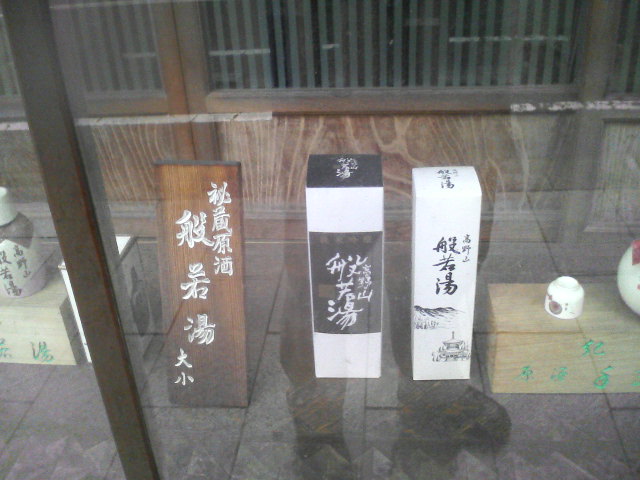 高野山
般若湯
若湯
秘蔵原酒
般若湯
大小
般若湯
高野山
般若湯
般若湯
高野山
般若湯
紀
原酒